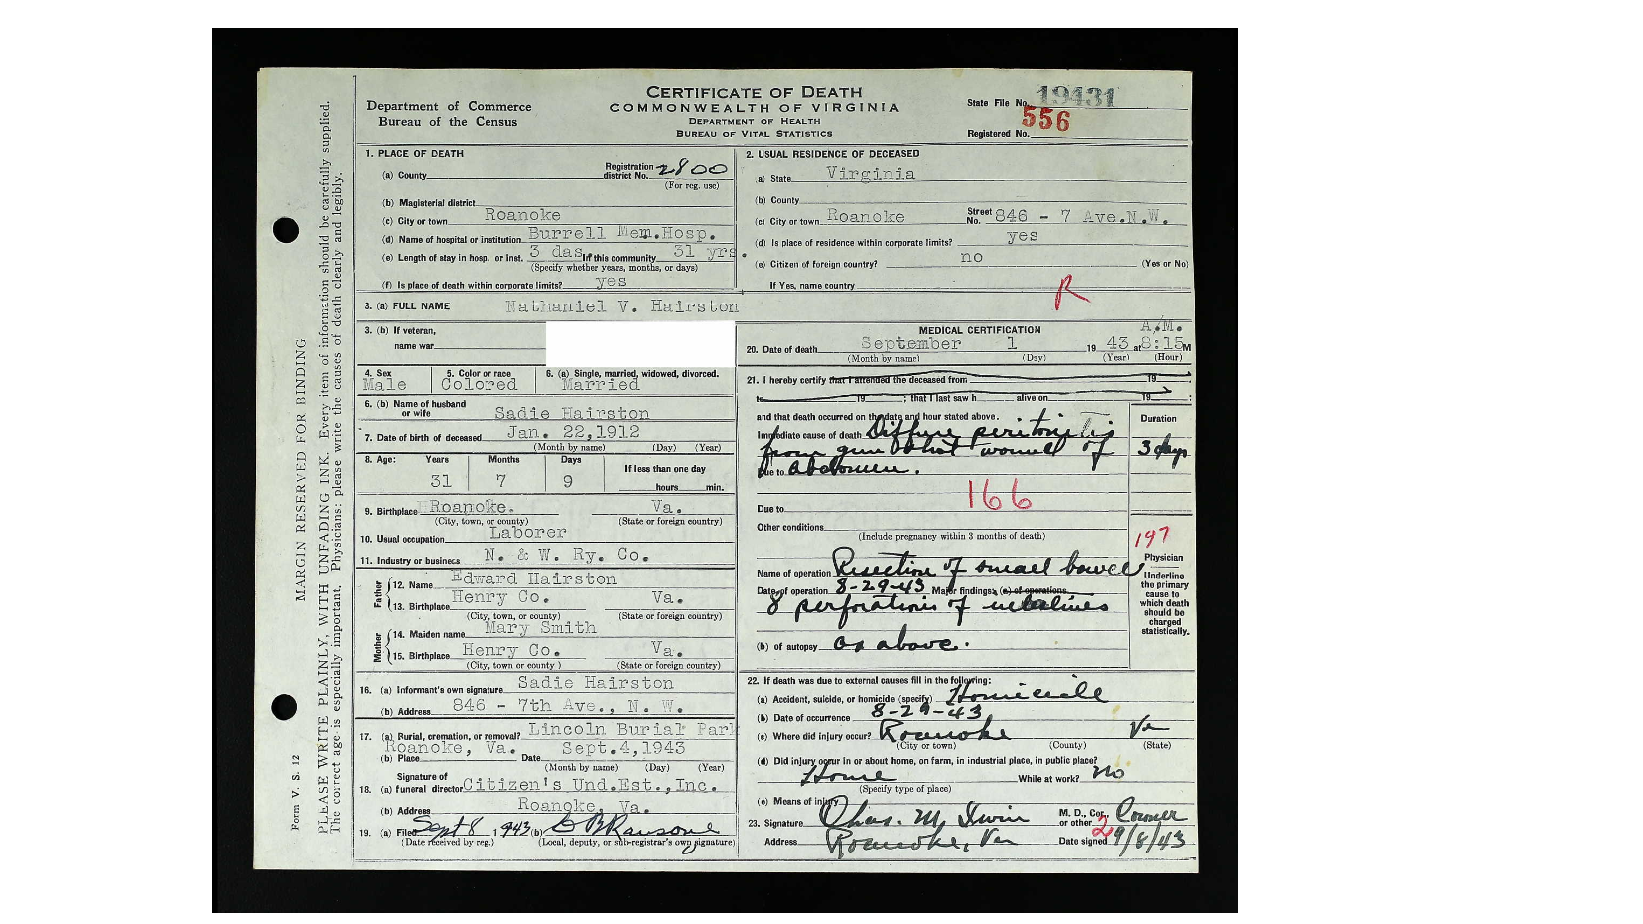 CERTIFICATE OF DEATH
COMMONWEALTH OF VIRGINIA
DEPARTMENT OF HEALTH
BUREAU OF VITAL STATISTICS
Department of Commerce
Bureau of the Census
State File No. 19431
556
Registered No.
MARGIN RESERVED FOR BINDING
PLEASE WRITE PLAINLY, WITH UNFADING INK. Every item of information should be carefully supplied.
The correct age is especially important. Physicians: please write the causes of death clearly and legibly.
Form V. S. 12
1. PLACE OF DEATH
(a) County Registration district No. 2800
(For reg. use)
(b) Magisterial district
(c) City or town Roanoke
(d) Name of hospital or institution Burrell Mem.Hosp.
(e) Length of stay in hosp. or inst. 3 das In this community 31 yrs.
(Specify whether years, months, or days)
(f) Is place of death within corporate limits? yes
2. USUAL RESIDENCE OF DECEASED
(a) State Virginia
(b) County
(c) City or town Roanoke Street No. 846 - 7 Ave.N.W.
(d) Is place of residence within corporate limits? yes
(e) Citizen of foreign country? no (Yes or No)
If Yes, name country
R
3. (a) FULL NAME Nathaniel V. Hairston
3. (b) If veteran,
name war
4. Sex 5. Color or race 6. (a) Single, married, widowed, divorced.
Male Colored Married
6. (b) Name of husband or wife Sadie Hairston
7. Date of birth of deceased Jan. 22,1912
(Month by name) (Day) (Year)
8. Age: Years Months Days If less than one day
31 7 9 hours min.
9. Birthplace Roanoke. Va.
(City, town, or county) (State or foreign country)
10. Usual occupation Laborer
11. Industry or business N. & W. Ry. Co.
Father
12. Name Edward Hairston
13. Birthplace Henry Co. Va.
(City, town, or county) (State or foreign country)
Mother
14. Maiden name Mary Smith
15. Birthplace Henry Co. Va.
(City, town or county ) (State or foreign country)
16. (a) Informant's own signature Sadie Hairston
(b) Address 846 - 7th Ave., N. W.
17. (a) Burial, cremation, or removal? Lincoln Burial Park
(b) Place Roanoke, Va. Date Sept.4,1943
(Month by name) (Day) (Year)
18. (a) Signature of funeral director Citizen's Und.Est.,Inc.
(b) Address Roanoke, Va.
19. (a) Filed Sept 8 1943 (b) C B Ransone
(Date received by reg.) (Local, deputy, or sub-registrar's own signature)
MEDICAL CERTIFICATION
20. Date of death September 1 1943 at 8:15 A.M. M
(Month by name) (Day) (Year) (Hour)
21. I hereby certify that I attended the deceased from 19
to 19 ; that I last saw h alive on 19 ;
and that death occurred on the date and hour stated above.
Duration
Immediate cause of death Diffuse peritonitis
from gun shot wound of 3 days
Due to abdomen.
166
Due to
Other conditions
(Include pregnancy within 3 months of death)
197
Physician
Underline the primary cause to which death should be charged statistically.
Name of operation Resection of small bowel
Date of operation 8-29-43 Major findings: (a) of operations
8 perforations of intestines
(b) of autopsy as above.
22. If death was due to external causes fill in the following:
(a) Accident, suicide, or homicide (specify) Homicide
(b) Date of occurrence 8-29-43
(c) Where did injury occur? Roanoke Va
(City or town) (County) (State)
(d) Did injury occur in or about home, on farm, in industrial place, in public place?
Home While at work? no
(Specify type of place)
(e) Means of injury
23. Signature Chas. M. Irvin M. D., Cor. or other Coroner
2
Address Roanoke, Va Date signed 9/8/43